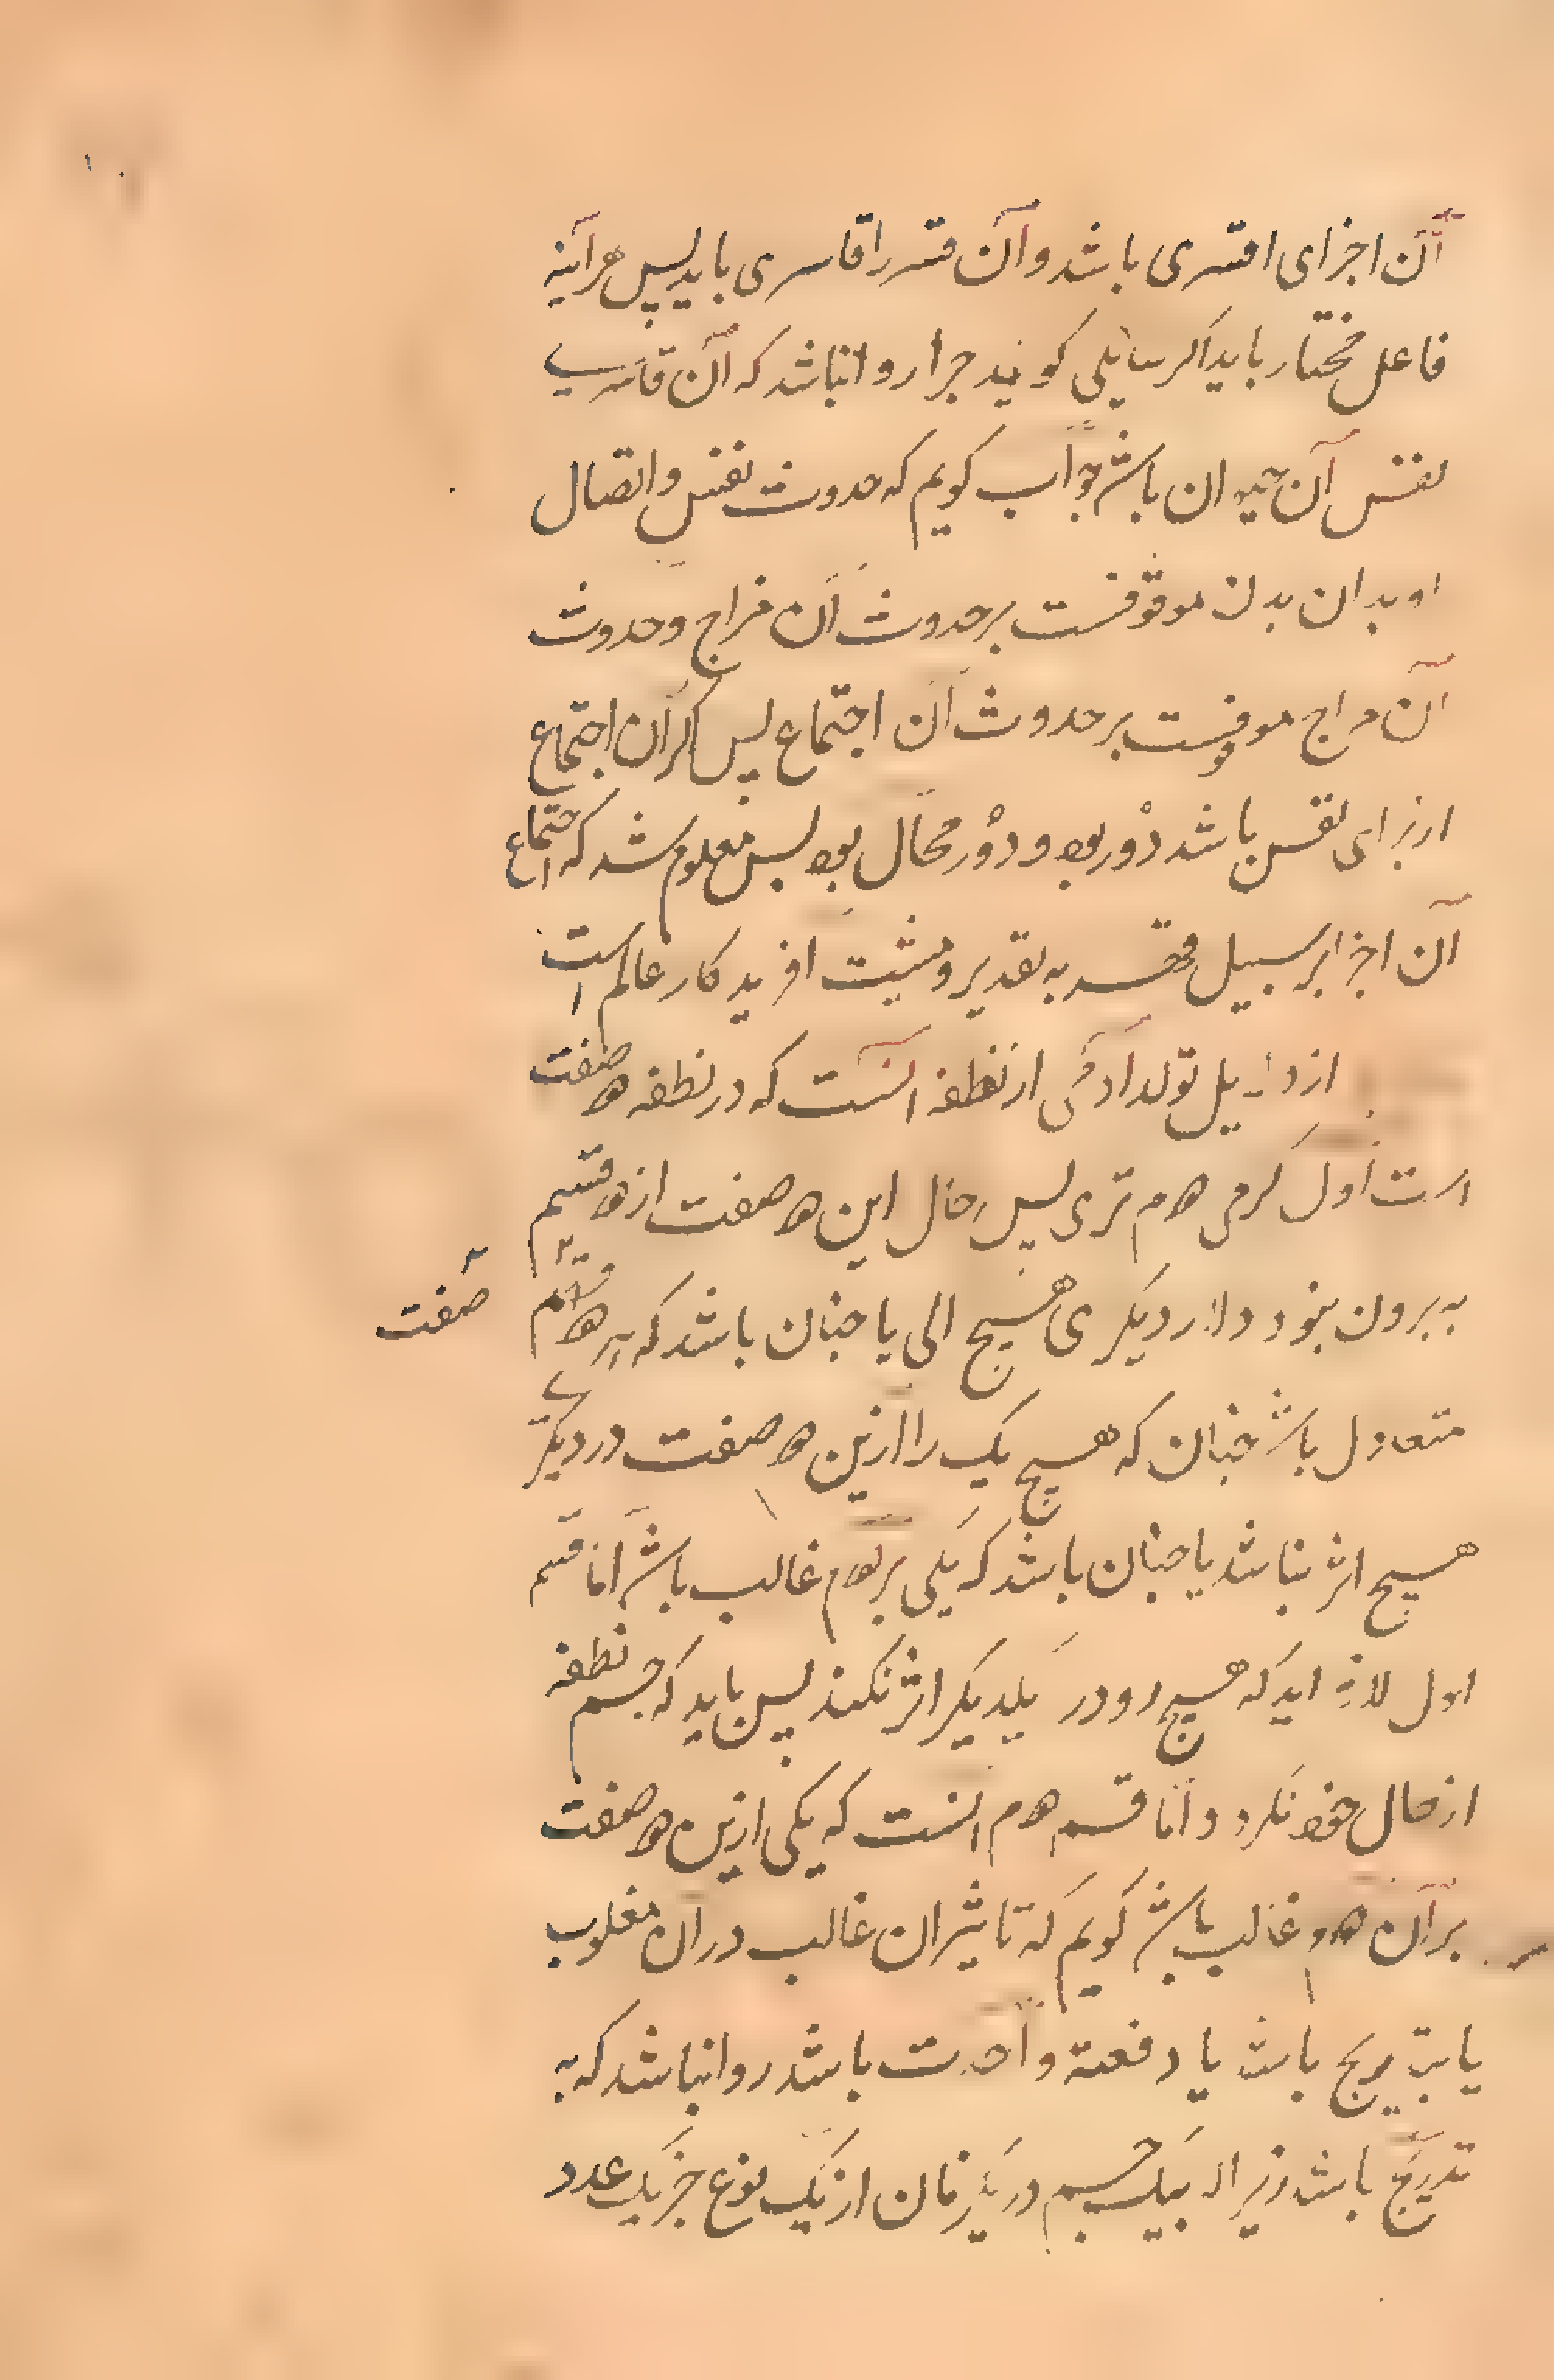 آن اجزای اقسری باشد و آن قسر را قاسری باید پس هر آینه
فاعل مختار باید اکر سایلی کوید چرا روا نباشد که آن قاسر
نفس آن حیوان باشد جواب کویم که حدوث نفس و اتصال
او بدان بدن موقوفست بر حدوث آن مزاج و حدوث
آن مزاج موقوفست بر حدوث آن اجتماع پس اکر آن اجتماع
از برای نفس باشد دور بود و دور محال بود پس معلوم شد که اجتماع
آن اجزا بر سبیل قهر به تقدیر و مشیت افریدکار عالم است
از دلایل تولد آدمی از نطفه آنست که در نطفه دو صفت
است اول کرمی دوم تری پس حال این دو صفت از دو قسم
بیرون نبود در دیکری هیچ یا چنان باشد که هر دو قسم
صفت
متعادل باشد چنان که هیچ یک را ازین دو صفت در دیکری
هیچ اثر نباشد یا چنان باشد که یکی بر دوم غالب باشد اما قسم
اول لازم اید که هیچ دو در یکدیکر اثر نکند پس باید که جسم نطفه
از حال خود نکردد و اما قسم دوم آنست که یکی ازین دو صفت
بر آن دوم غالب باشد کویم که تاثیر ان غالب در ان مغلوب
یا بتدریج باشد یا دفعة واحدت باشد روا نباشد که به
تدریج باشد زیرا که بیک جسم در یک زمان از یک نوع جز یک عدد